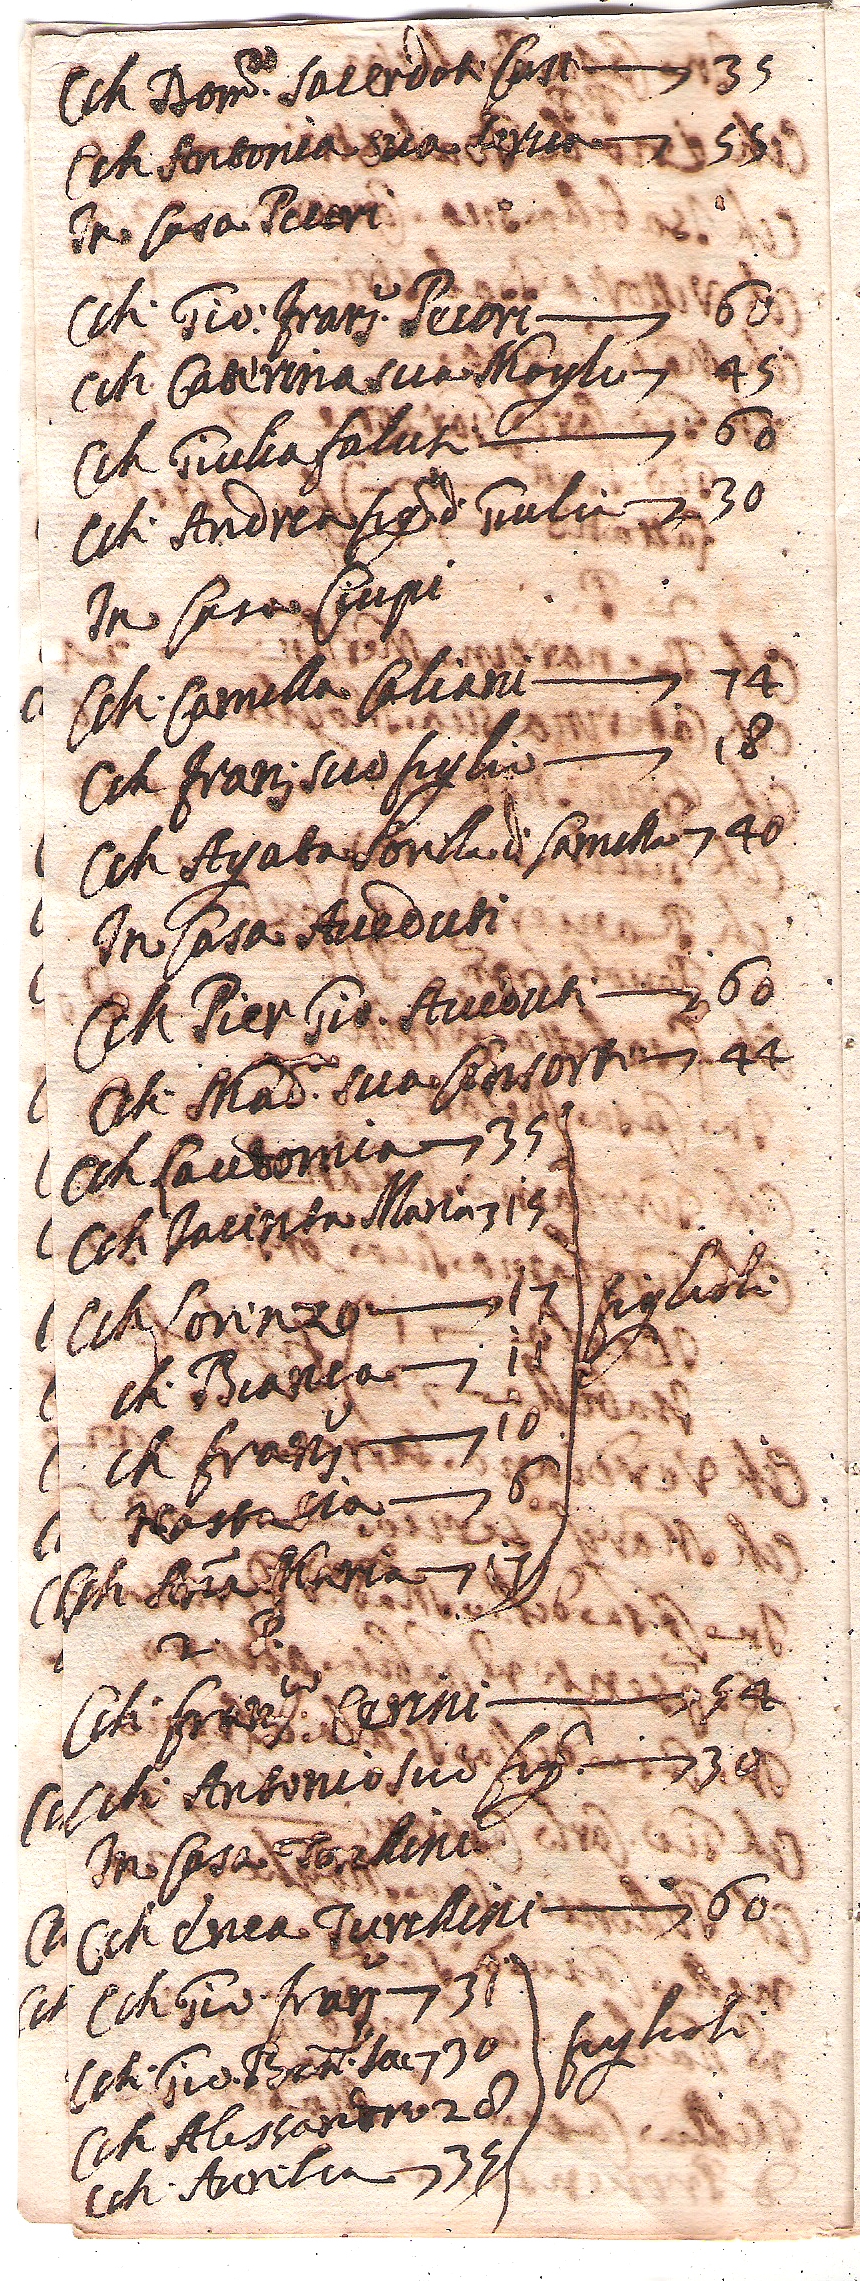 Cch Dom.co Sacerdot. Cast 35
Cch Antonia sua serva 55
In Casa Pecori
Cch. Gio: Franc.o Pecori 60
Cch Caterina sua Moglie 45
Cch Giulia Salut 60
Cch. Andrea fig.o di Giulia 30
In Casa Ciupi
Cch. Camilla Galiani 74
Cch Franc suo figlio 18
Cch Agata Sorella di Camilla 40
In Casa Aveduti
Cch Pier Gio. Aveduti 60
Cch. Mad.a sua Consorte 44
Cch Laudomia 35
Cch Jacinta Maria 15
Cch Lorenzo 17 figlioli
ch. Bianca 11
ch Franc.o 10
nastasia 6
Cch Anna Maria 17
2. P.
Cch. Franc.co Cerini 54
Cch. Antonio suo fig.o 30
In Casa Turchini
Cch Enea Turchini 60
Cch Gio. Franc.o 31
Cch. Gio. Batt. Sac 30 figlioli
Cch Alessandro 28
Cch. Aurelia 35